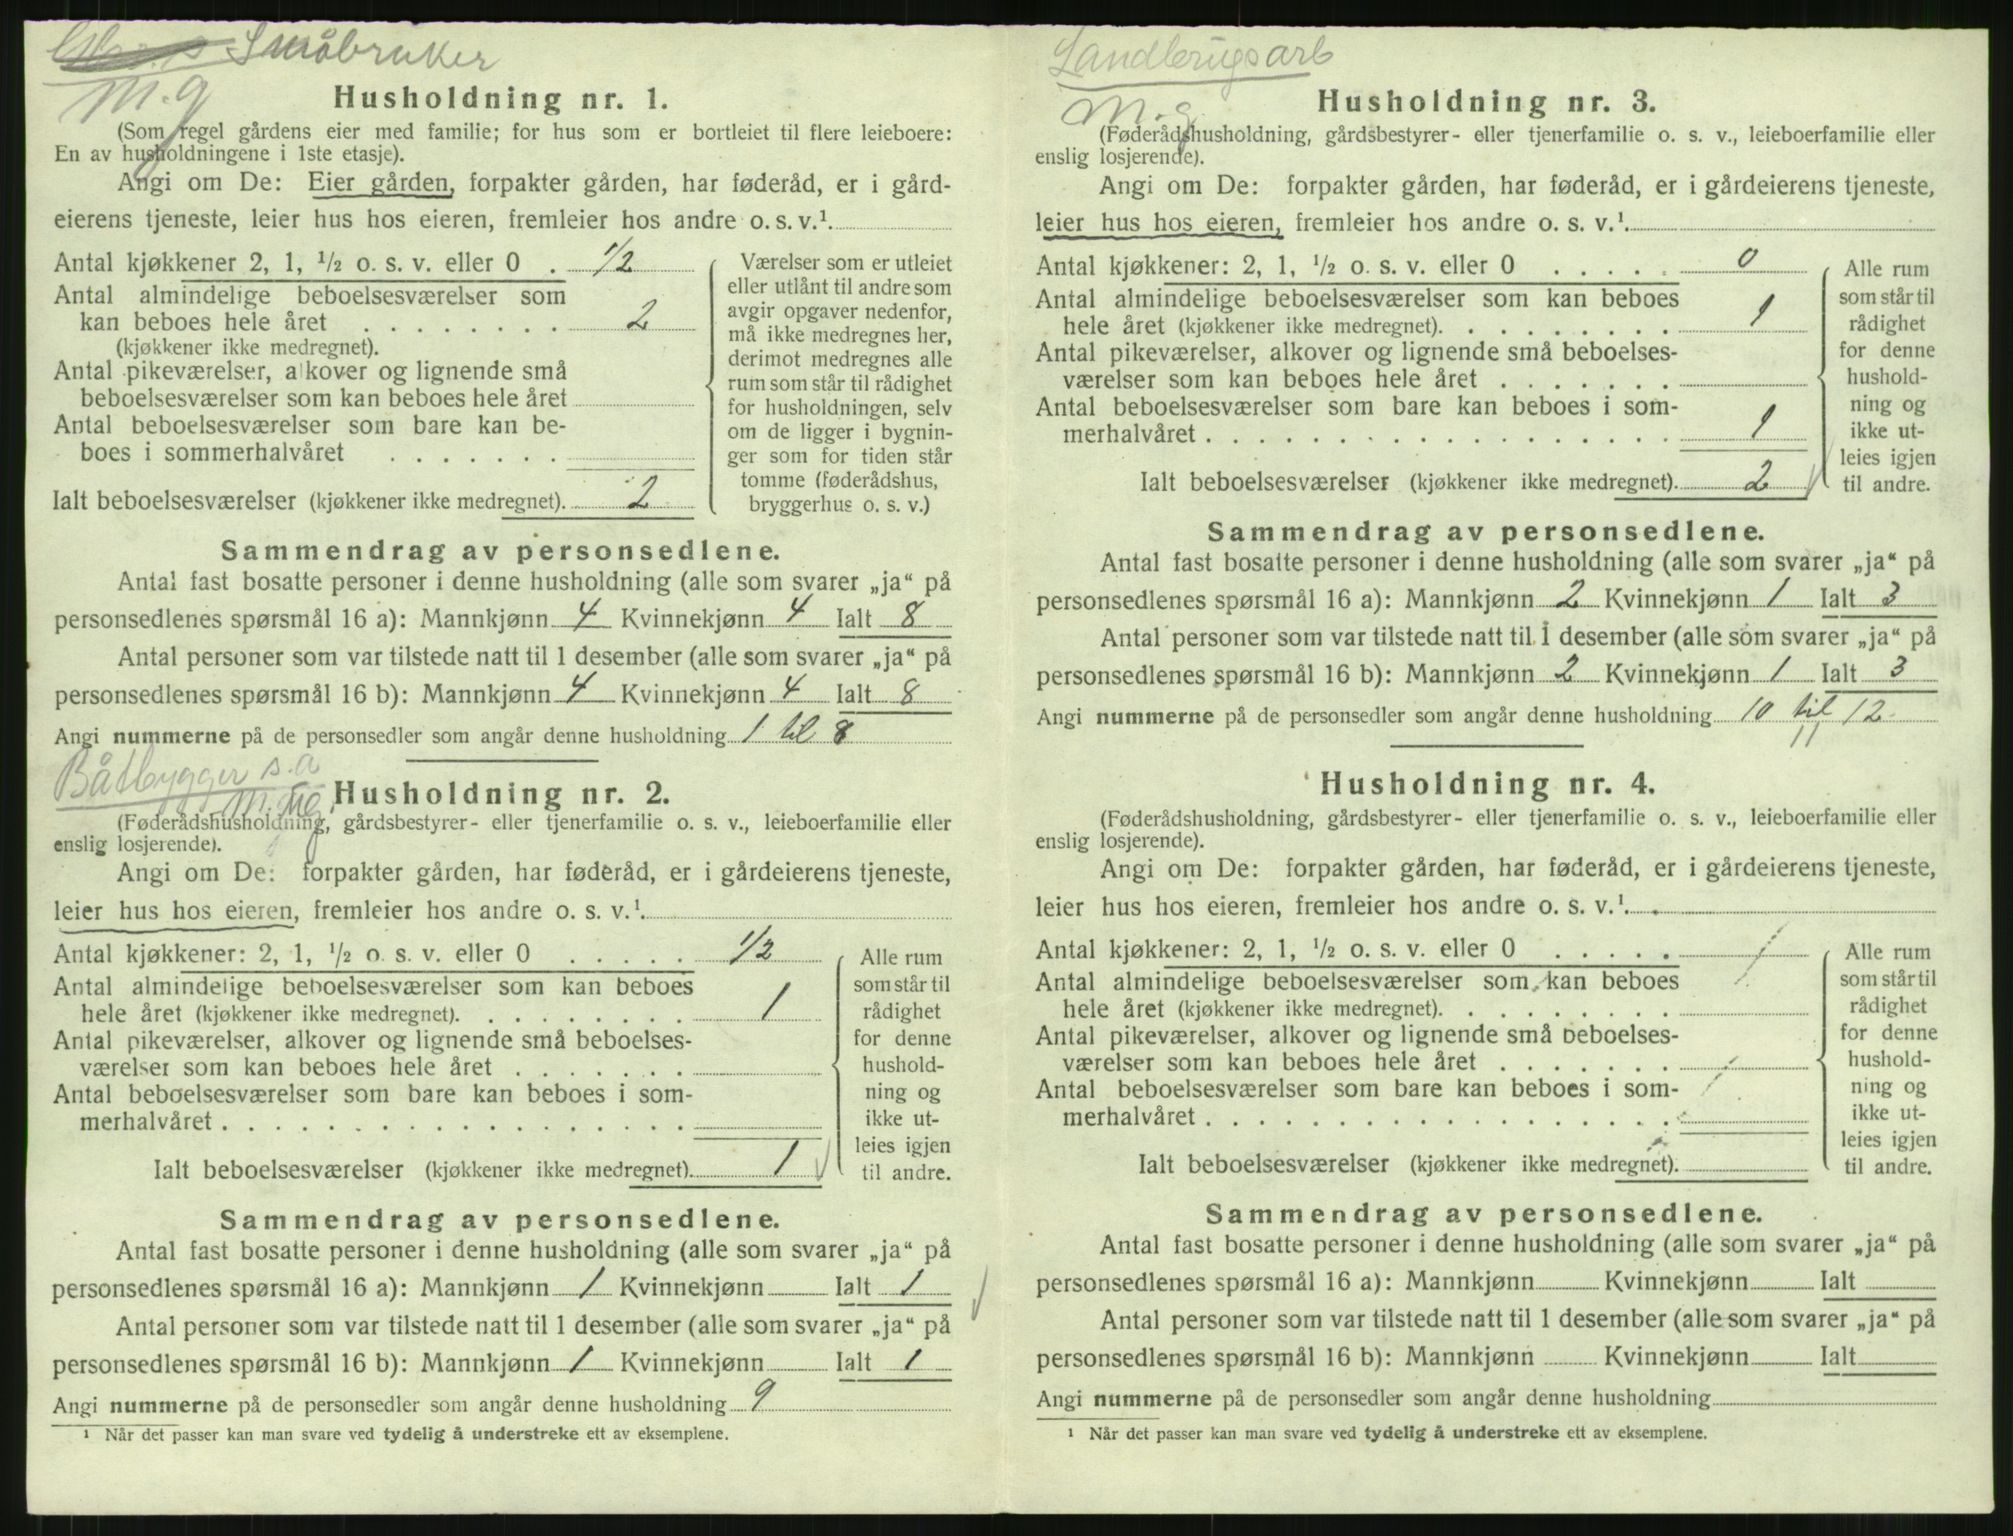 Småbruker
M.g
Husholdning nr. 1.
(Som regel gårdens eier med familie; for hus som er bortleiet til flere leieboere:
En av husholdningene i 1ste etasje).
Angi om De: Eier gården, forpakter gården, har føderåd, er i gård-
eierens tjeneste, leier hus hos eieren, fremleier hos andre o. s. v.¹
Antal kjøkkener 2, 1, ½ o. s. v. eller 0 . 1/2
Antal almindelige beboelsesværelser som
kan beboes hele året . . . . . . . . 2
(kjøkkener ikke medregnet).
Antal pikeværelser, alkover og lignende små
beboelsesværelser som kan beboes hele året
Antal beboelsesværelser som bare kan be-
boes i sommerhalvåret . . . . . . .
Ialt beboelsesværelser (kjøkkener ikke medregnet). 2
Værelser som er utleiet
eller utlånt til andre som
avgir opgaver nedenfor,
må ikke medregnes her,
derimot medregnes alle
rum som står til rådighet
for husholdningen, selv
om de ligger i bygnin-
ger som for tiden står
tomme (føderådshus,
bryggerhus o. s. v.)
Sammendrag av personsedlene.
Antal fast bosatte personer i denne husholdning (alle som svarer „ja“ på
personsedlenes spørsmål 16 a): Mannkjønn 4 Kvinnekjønn 4 Ialt 8
Antal personer som var tilstede natt til 1 desember (alle som svarer „ja“ på
personsedlenes spørsmål 16 b): Mannkjønn 4 Kvinnekjønn 4 Ialt 8
Angi nummerne på de personsedler som angår denne husholdning 1 til 8
Båtbygger s.a
M.
Husholdning nr. 2.
(Føderådshusholdning, gårdsbestyrer- eller tjenerfamilie o. s. v., leieboerfamilie eller
enslig losjerende).
Angi om De: forpakter gården, har føderåd, er i gårdeierens tjeneste,
leier hus hos eieren, fremleier hos andre o. s. v.¹.
Antal kjøkkener: 2, 1, ½ o. s. v. eller 0 . . . . . 1/2
Antal almindelige beboelsesværelser som kan beboes
hele året (kjøkkener ikke medregnet). . . . . . . . . 1
Antal pikeværelser, alkover og lignende små beboelses-
værelser som kan beboes hele året . . . . . . .
Antal beboelsesværelser som bare kan beboes i som-
merhalvåret . . . . . . . . . . . . . . . . . .
Ialt beboelsesværelser (kjøkkener ikke medregnet). 1
Alle rum
som står til
rådighet
for denne
hushold-
ning og
ikke ut-
leies igjen
til andre.
Sammendrag av personsedlene.
Antal fast bosatte personer i denne husholdning (alle som svarer „ja“ på
personsedlenes spørsmål 16 a): Mannkjønn 1 Kvinnekjønn Ialt 1
Antal personer som var tilstede natt til 1 desember (alle som svarer „ja“ på
personsedlenes spørsmål 16 b): Mannkjønn 1 Kvinnekjønn Ialt 1
Angi nummerne på de personsedler som angår denne husholdning 9
¹ Når det passer kan man svare ved tydelig å understreke ett av eksemplene.
Landbrugsarb
M.g.
Husholdning nr. 3.
(Føderådshusholdning, gårdsbestyrer- eller tjenerfamilie o. s. v., leieboerfamilie eller
enslig losjerende).
Angi om De: forpakter gården, har føderåd, er i gårdeierens tjeneste,
leier hus hos eieren, fremleier hos andre o. s. v.¹.
Antal kjøkkener: 2, 1, ½ o. s. v. eller 0 . . . . . 0
Antal almindelige beboelsesværelser som kan beboes
hele året (kjøkkener ikke medregnet). . . . . . . . . 1
Antal pikeværelser, alkover og lignende små beboelses-
værelser som kan beboes hele året . . . . . . .
Antal beboelsesværelser som bare kan beboes i som-
merhalvåret . . . . . . . . . . . . . . . . . . 1
Ialt beboelsesværelser (kjøkkener ikke medregnet). 2
Alle rum
som står til
rådighet
for denne
hushold-
ning og
ikke ut-
leies igjen
til andre.
Sammendrag av personsedlene.
Antal fast bosatte personer i denne husholdning (alle som svarer „ja“ på
personsedlenes spørsmål 16 a): Mannkjønn 2 Kvinnekjønn 1 Ialt 3
Antal personer som var tilstede natt til 1 desember (alle som svarer „ja“ på
personsedlenes spørsmål 16 b): Mannkjønn 2 Kvinnekjønn 1 Ialt 3
Angi nummerne på de personsedler som angår denne husholdning 10 til 12
11
Husholdning nr. 4.
(Føderådshusholdning, gårdsbestyrer- eller tjenerfamilie o. s. v., leieboerfamilie eller
enslig losjerende).
Angi om De: forpakter gården, har føderåd, er i gårdeierens tjeneste,
leier hus hos eieren, fremleier hos andre o. s. v.¹.
Antal kjøkkener: 2, 1, ½ o. s. v. eller 0 . . . . .
Antal almindelige beboelsesværelser som kan beboes
hele året (kjøkkener ikke medregnet). . . . . . . . .
Antal pikeværelser, alkover og lignende små beboelses-
værelser som kan beboes hele året . . . . . . .
Antal beboelsesværelser som bare kan beboes i som-
merhalvåret . . . . . . . . . . . . . . . . . .
Ialt beboelsesværelser (kjøkkener ikke medregnet).
Alle rum
som står til
rådighet
for denne
hushold-
ning og
ikke ut-
leies igjen
til andre.
Sammendrag av personsedlene.
Antal fast bosatte personer i denne husholdning (alle som svarer „ja“ på
personsedlenes spørsmål 16 a): Mannkjønn Kvinnekjønn Ialt
Antal personer som var tilstede natt til 1 desember (alle som svarer „ja“ på
personsedlenes spørsmål 16 b): Mannkjønn Kvinnekjønn Ialt
Angi nummerne på de personsedler som angår denne husholdning
¹ Når det passer kan man svare ved tydelig å understreke ett av eksemplene.